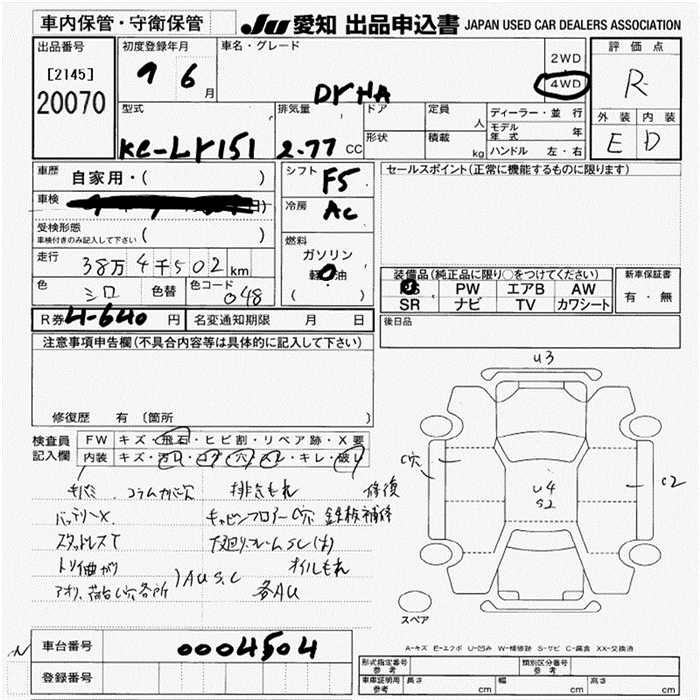 車内保管・守衛保管
JU 愛知 出品申込書 JAPAN USED CAR DEALERS ASSOCIATION
出品番号
[2145]
20070
初度登録年月
9 6 月
車名・グレード
DYHA
2WD
4WD
評価点
R
外装 内装
E D
型式
KC-LY151
排気量
2.77 CC
ドア
形状
定員
人
積載
kg
ディーラー・並行
モデル年式 年
ハンドル 左・右
車歴
自家用・( )
車検
日)
受検形態
車検付きのみ記入して下さい ( )
走行
38万4千502 km
色
シロ
色替
色コード
048
シフト
F5
冷房
AC
燃料
ガソリン
軽油
( )
セールスポイント(正常に機能するものに限ります)
装備品(純正品に限り○をつけてください)
PS PW エアB AW
SR ナビ TV カワシート
新車保証書
有・無
後日品
R券 4-640 円
名変通知期限 月 日
注意事項申告欄(不具合内容等は具体的に記入して下さい)
修復歴 有 〔箇所 〕
検査員
記入欄
FW キズ・飛石・ヒビ割・リペア跡・X要
内装 キズ・汚レ・コゲ・穴・スレ・キレ・破レ
コラムカバ穴 排きもれ 修復
バッテリーX キャビンフロアーC穴 鉄板補修
スタッドレスT 下廻りフレームSC(大)
トリ曲がり )AUS.C オイルもれ
アオリ、荷台C穴各所 各AU
U3
C穴
U4
S2
C2
スペア
A-キズ E-エクボ U-凹み W-補修跡 S-サビ C-腐食 XX-交換済
車台番号
0004504
登録番号
形式指定番号
参考
類別区分番号
参考
車庫証明用
参考
長さ cm
幅 cm
高さ cm